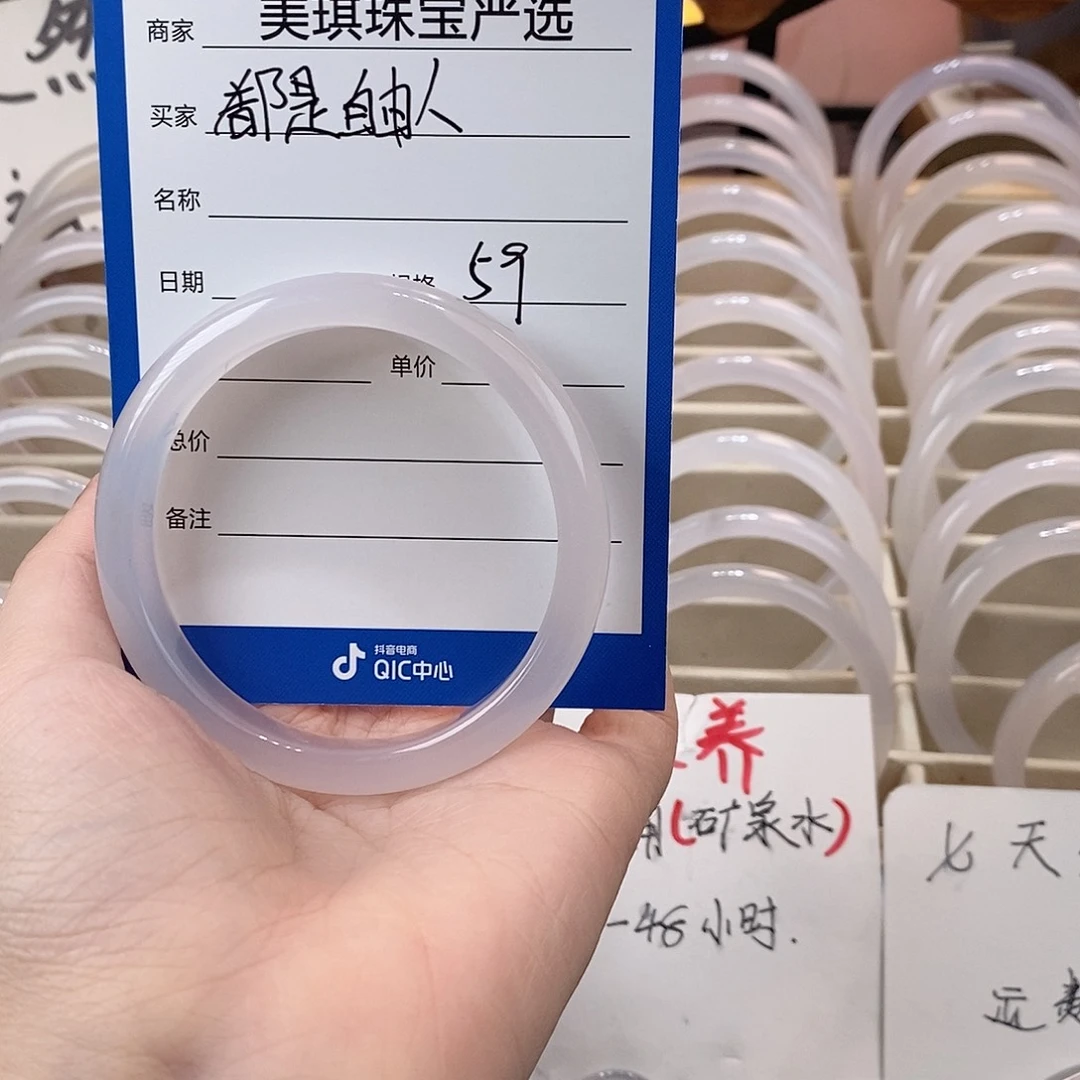 商家 美琪珠宝严选
买家 都是自由人
名称
日期 规格 59
单价
总价
备注
抖音电商
QIC中心
养
(矿泉水)
-48小时.
七天